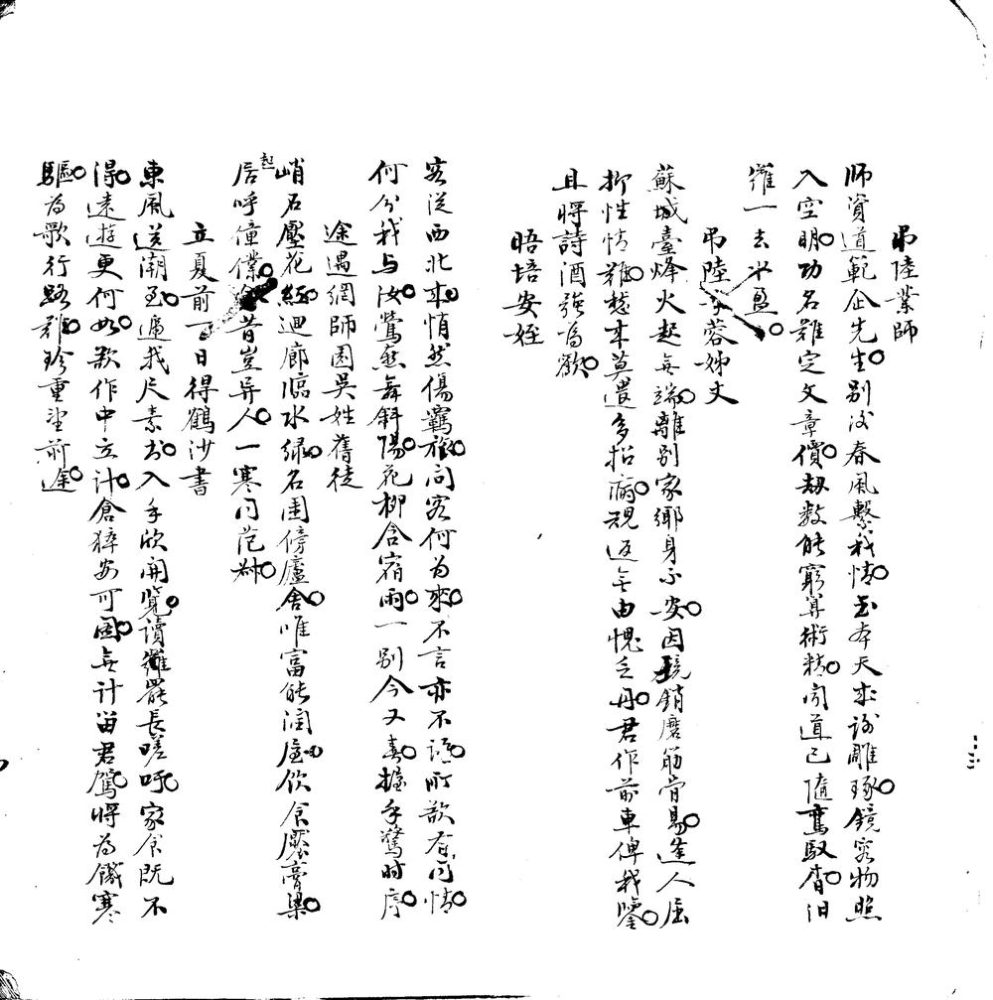 弔陸業師
師資道範企先生別後春風繫我情玉本天求謝雕琢鏡容物照
入空明功名難定文章價劫數能窮算術精問道已隨鸞馭杳汨
羅一去不盈
弔陸蓉姊丈
蘇城臺烽火起無端離別家鄉身不安因境銷磨筋骨易逢人屈
抑性情難愁本莫遣多招病規返無由愧乏丹君作前車俾我鑒
且將詩酒強為歡
晤培安姪
客從西北來悄然傷羈旅問客何為來不言亦不語所欲在同情
何分我与汝鶯燕舞斜陽花柳含宿雨一別今又春握手驚時序
途遇網師園吳姓舊徒
峭石壓花經迴廊臨水綠名園傍廬舍唯富能潤屋飲食饜膏梁
起居呼僮僕昔豈异人一寒同范叔
立夏前一百日得鶴沙書
東風送潮至遞我尺素書入手欣開覽讀罷長嗟吁家食既不
得遠遊更何如欲作中立計倉猝安可圖無計留君駕將為饑寒
驅為歌行路難珍重望前途